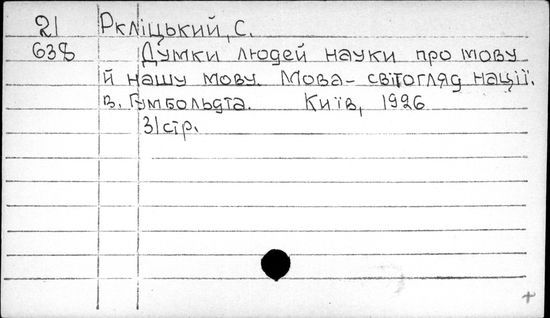 21 Ркліцький, С.
638 Думки людей науки про мову
й нашу мову. Мова - світогляд нації.
В. Гумбольдта. Київ, 1926
31 стр.
+